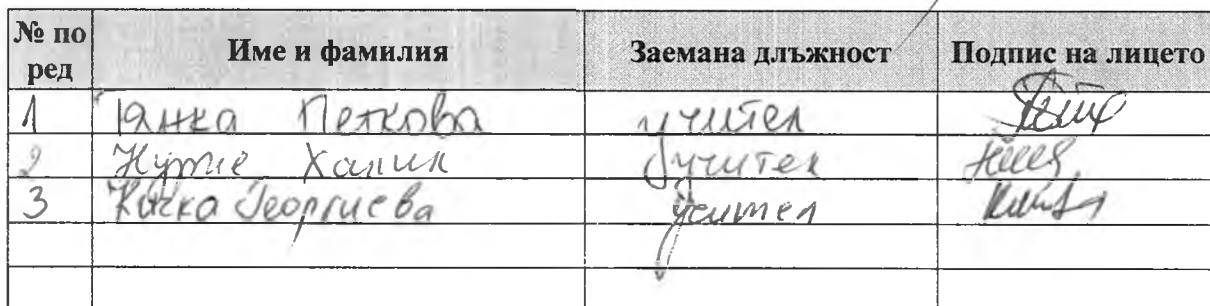 № по ред Име и фамилия Заемана длъжност Подпис на лицето
1 Янка Петкова учител
2 Нурие Халил учител
3 Кичка Георгиева учител